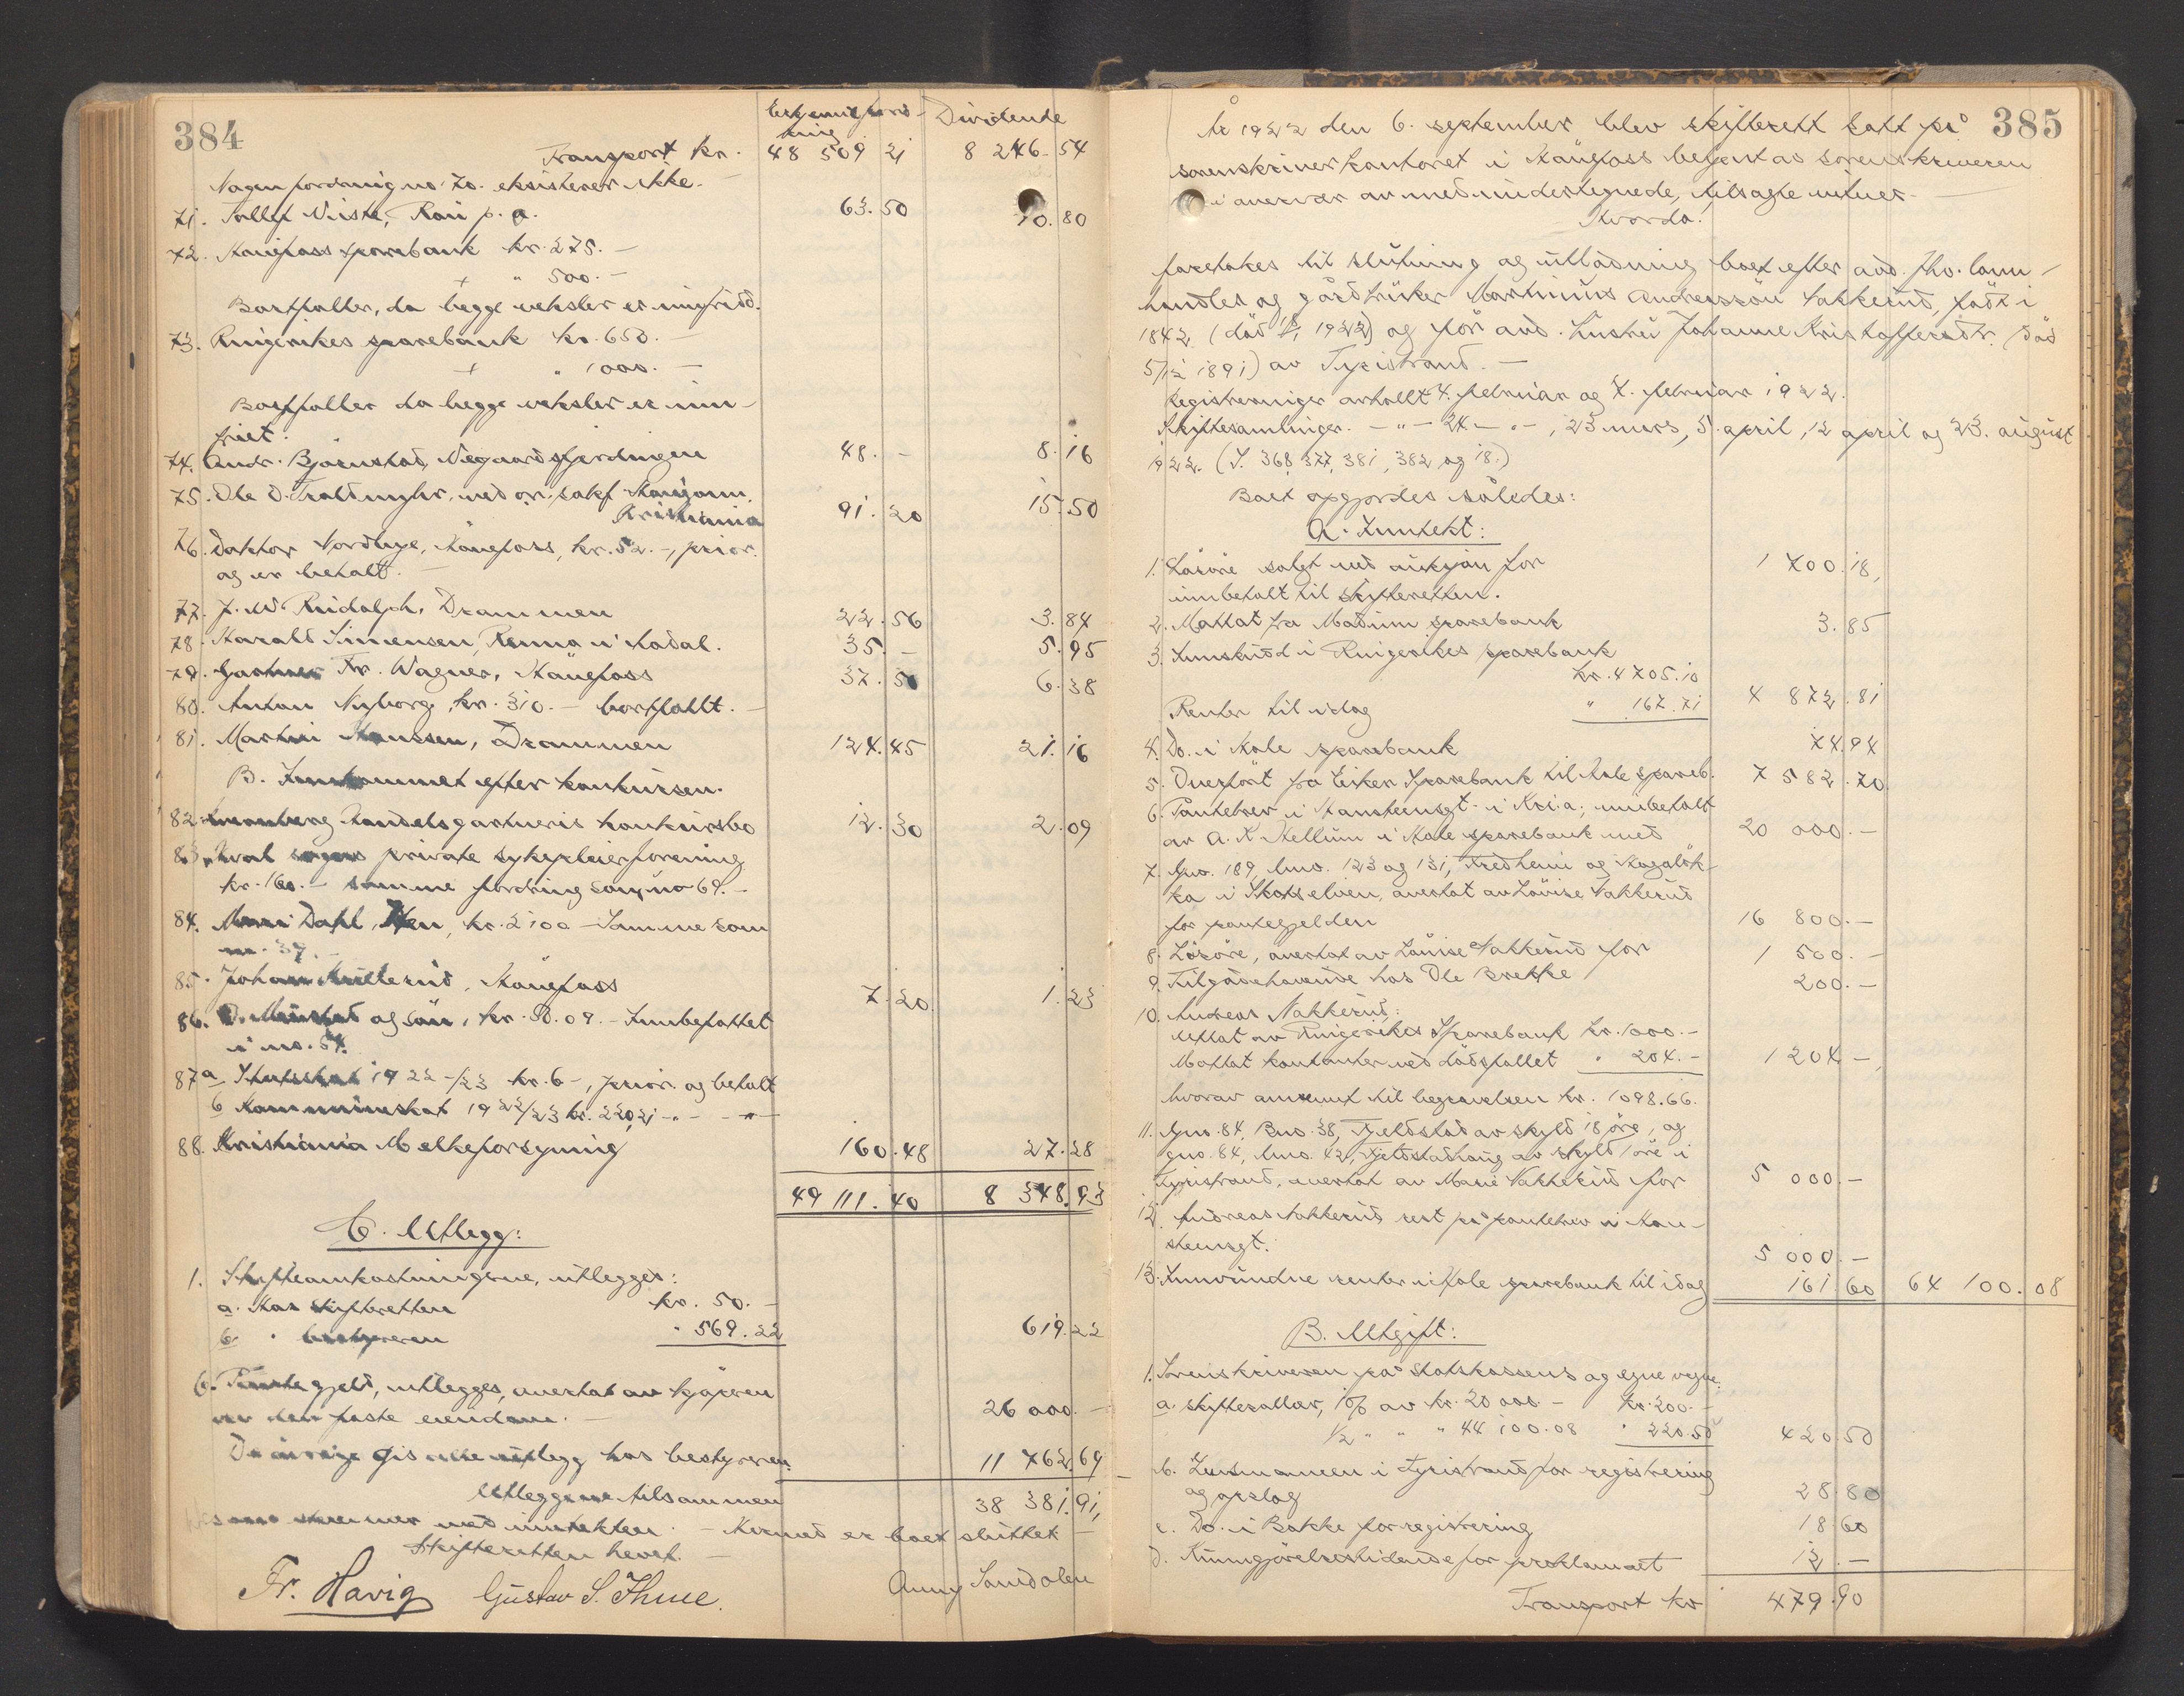 384
Dividende
Transport kr. 48 509 21 8 246. 54
Nogen fordring no. 70. eksisterer ikke. —
71. p. a. 63. 50 10. 80
72. Hønefoss sparebank kr. 275. —
+ " 500. —
Bortfaller, da begge veksler er innfridd.
73. Ringerikes sparebank kr. 650. —
+ " 1000. —
Bortfaller da begge veksler er inn-
friet.
74. Andr. Bjørnstad, 48. - 8. 16
75. Ole O. ved
Kristiania 91. 20 15. 50
76. Doktor Nordbye, Hønefoss, kr. 52. -, prior.
og er betalt. —
77. J. W. Rudolph, Drammen 22. 56 3. 84
78. Harald Simensen, i Aadal. 35. - 5. 95
79. Gartner Fr. Wagner, Hønefoss 37. 50 6. 38
80. Anton Nyborg, kr. 310. — bortfallt. —
81. Martin Hanssen, Drammen 124. 45 21. 16
B. Innkommet efter konkursen.
82. Handelsgartneris konkursbo 12. 30 2. 09
83. private sykepleierforening
kr. 160. - samme fordring som no 69. -
84. Dahl, kr. 2100 - Samme som
no. 37. -
85. Johan Hønefoss 7. 20 1. 23
86. og søn, kr. 50. 09. - Innbefattet
i no. 54.
87 a Statsskat 1922-/23 kr. 6 -, prior. og betalt
b Kommuneskat 1922/23 kr. 220,21 - " - - " -
88. Kristiania Melkeforsyning 160. 48 27. 28
49 111. 40 8 348. 93
C. Utlegg:
1. Skifteomkostningerne, utlegges:
a. Hos skifteretten kr. 50. -
b. " bestyreren " 569. 22 619. 22
6. Pantegjeld, utlegges, overtat av kjøperen
av den faste eiendom. — 26 000. —
De øvrige gis utlegg hos bestyreren. 11 762. 69
Utleggene tilsammen 38 381. 91,
stemmer med inntekten. - Hermed er boet sluttet —
Skifteretten hevet. —
Fr. Havig Gustav S. Thue. Anny Sandolen
385
År 1922 den 6. september blev skifterett satt på
sorenskriverkontoret i Hønefoss betjent av sorenskriveren
i overvær av medundertegnede, tilsagte vitner. —
Hvorda:
foretokes til slutning og utlodning boet efter avd. fhv. lann-
handler og gårdbruker Marthinus Andreassøn Nakkerud, født i
1842 (død 1922) og før avd. hustru Johanne Kristoffersdtr. (død
5/12 1891) av Tyristrand. —
Registreringer avholdt 4. februar og 7. februar 1922.
Skiftesamlinger. - " - 24. - " -, 23 mars, 5. april, 12 april og 23. august
1922. (S. 368, 377, 381, 382 og 18.)
Boet opgjordes således:
A. Inntekt:
1. Løsøre solgt ved auksjon for
innbetalt til skifteretten. 1 700. 18,
2. Mottat fra Modum sparebank 3. 85
3. Innskudd i Ringerikes sparebank
kr. 4705. 10
Renter til idag " 167. 71 4 872. 81
4. Do. i Hole sparebank 74. 94
5. Overført fra Eiker Sparebank til Hole spareb. 7 582. 70
6. Pantebrev i i Kr.a; innbetalt
av A. K. Mellum i Hole sparebank med 20 000. —
7. Gno. 189, bno. 123 og 131, Fredheim og
ka i Skotselven, overtat av Lovise Nakkerud
for pantegjelden 16 800. —
8. Løsøre, overtat av Lovise Nakkerud for 1 500. —
9. Tilgodehavende hos Ole Brekke 200. —
10. Andreas Nakkerud:
uttat av Ringerikes Sparebank kr. 1000. -
Mottat kontanter ved dødsfallet " 204. - 1 204 —
hvorav anvendt til begravelsen kr. 1098.66.
11. Gno. 84, Bno. 38, Fjeldstad av skyld 18 øre, og
gno. 84, bno. 42, Fjeldstadhaug av skyld 1 øre i
Tyristrand, overtat av Marie Nakkerud for 5 000. —
12. Andreas Nakkerud, rest på pantebrev i
5 000. —
13. Innvundne renter i Hole sparebank til idag 161. 60 64 100. 08
B. Utgift:
1. Sorenskriveren på statskassens og egne vegne:
a. skifteraller, 1% av kr. 20 000. - kr. 200. -
1/2 " " " 44 100.08 " 220.50 420. 50
b. Lensmannen i Tyristrand for registrering
og opslag 28. 80
c. Do. i Bakke for registrering 18. 60
d. Kunngjørelsestidende for proklamaet 12. —
Transport kr 479. 90